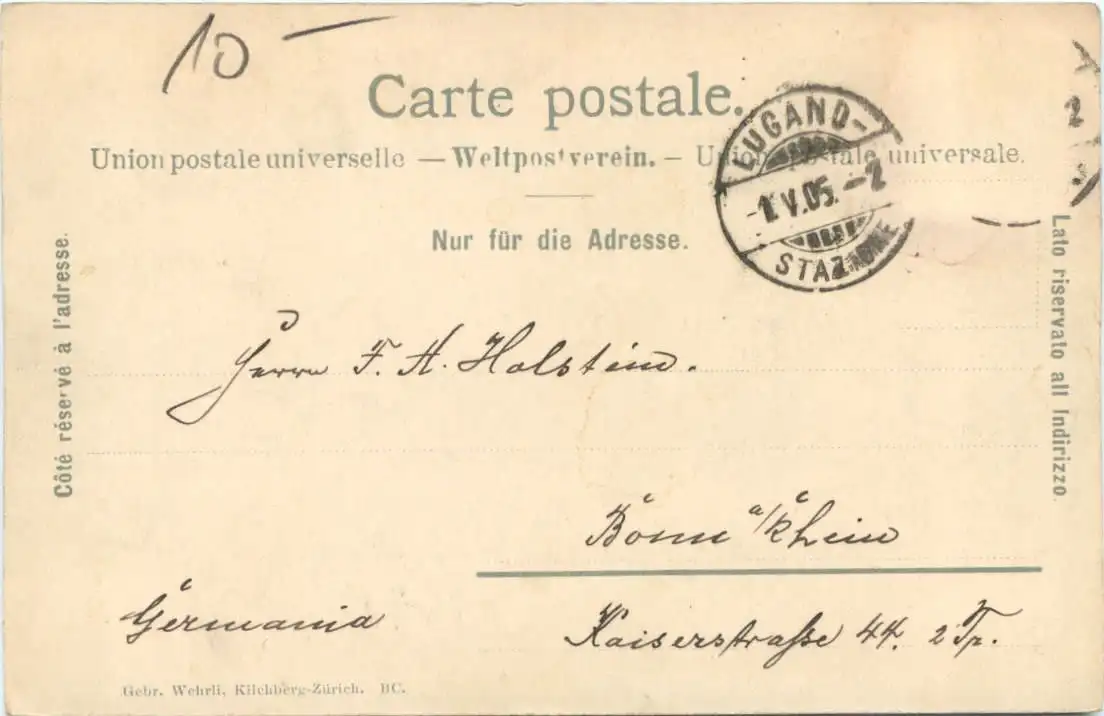 10 —
Carte postale.
Union postale universelle — Weltpostverein. — Unione postale universale.
Nur für die Adresse.
LUGANO-
-1.V.05.-2
STAZIONE
Côté réservé à l'adresse.
Lato riservato all Indirizzo
Herrn F. A. Holstein.
Bonn a/Rhein
Germania
Kaiserstraße 44. 2 Tr.
Gebr. Wehrli, Kilchberg-Zürich. BC.
2